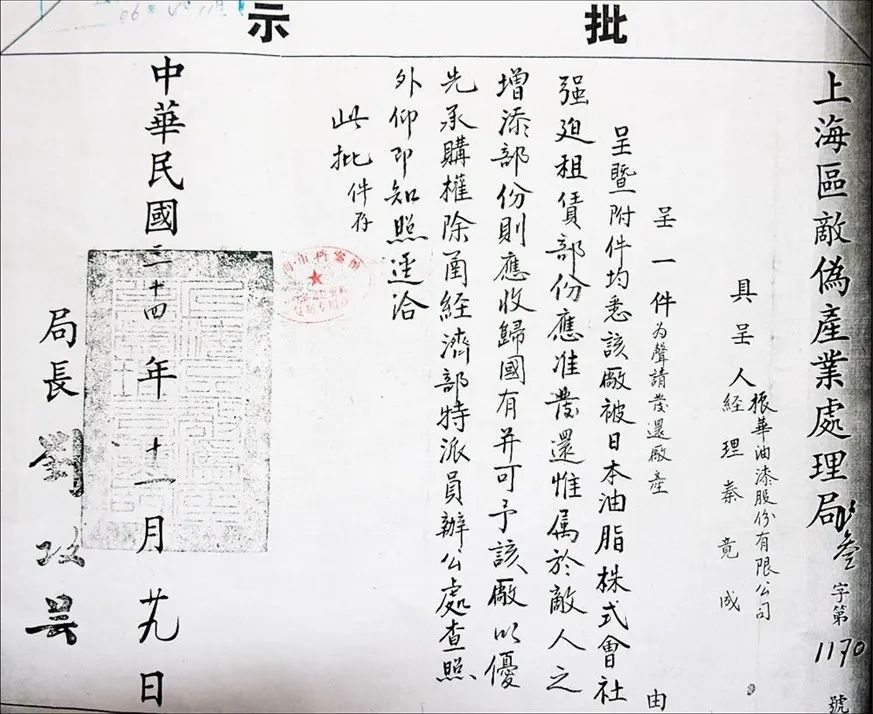 批示
上海區敵偽產業處理局
叁字第1170號
具呈人
振華油漆股份有限公司
經理秦竟成
呈一件為聲請發還廠產由
呈暨附件均悉該廠被日本油脂株式會社
强廹租賃部份應准發還惟屬於敵人之
增添部份則應收歸國有并可予該廠以優
先承購權除函經濟部特派員辦公處查照
外仰即知照逕洽
此批件存
中華民國三十四年十一月廿九日
局長劉攻芸